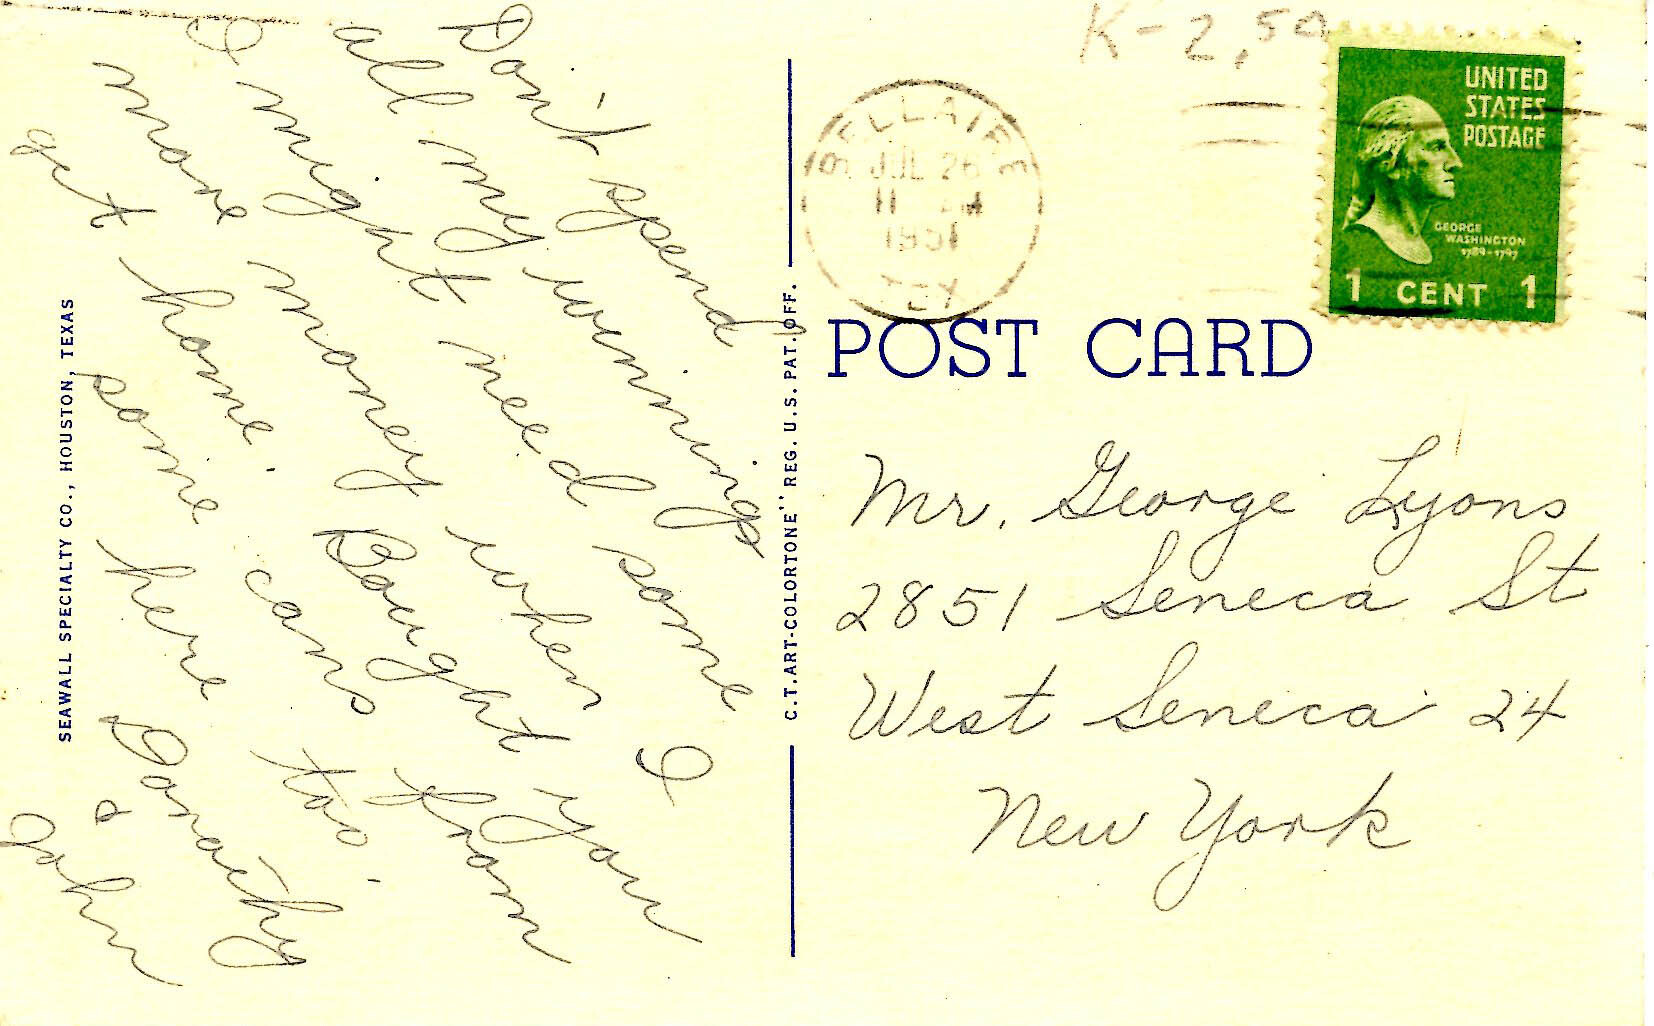 Don't spend
all my winnings
I might need some
more money when I
get home. Bought you
some cans from
here too.
Dorothy
&
John
SEAWALL SPECIALTY CO., HOUSTON, TEXAS
C.T. ART-COLORTONE' REG. U.S. PAT. OFF.
K-2,50
BELLAIRE
JUL 26
11 AM
1951
TEX
UNITED
STATES
POSTAGE
GEORGE
WASHINGTON
1789-1797
1 CENT 1
POST CARD
Mr. George Lyons
2851 Seneca St
West Seneca 24
New York